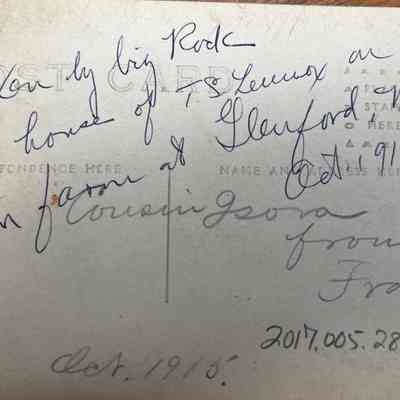 by big Rock
POST CARD
house of T S Lennox on
STAMP
HERE
farm at Glenford,
CORRESPONDENCE HERE
NAME AND ADDRESS
Oct. 191
Cousin Isora
from
Fra
2017.005.28
Oct. 1915.